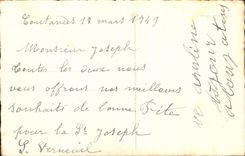 Coutances 18 mars 1949
Monsieur Joseph
Toutes les deux nous
vous offrons nos meilleurs
souhaits de bonne Fête
pour la St Joseph
S. Verneuil